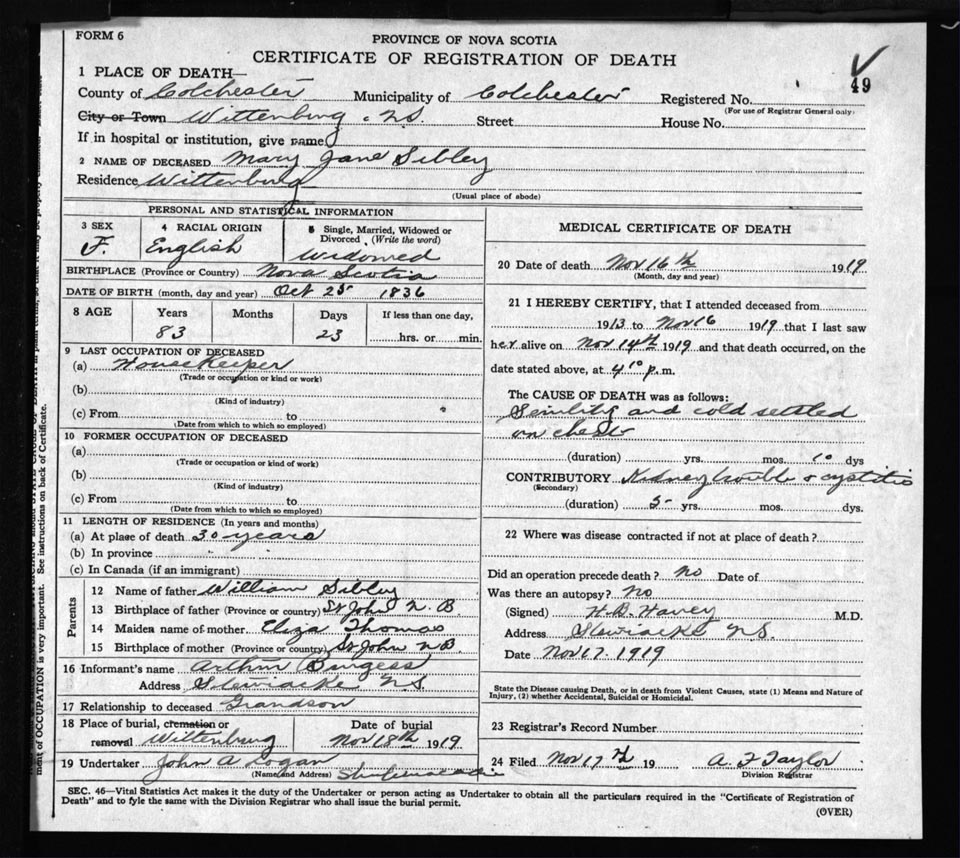 FORM 6
PROVINCE OF NOVA SCOTIA
CERTIFICATE OF REGISTRATION OF DEATH
49
1 PLACE OF DEATH—
County of Colchester Municipality of Colchester Registered No.
(For use of Registrar General only)
City or Town Wittenburg N.S. Street House No.
If in hospital or institution, give name
2 NAME OF DECEASED Mary Jane Sibley
Residence Wittenburg
(Usual place of abode)
PERSONAL AND STATISTICAL INFORMATION
3 SEX 4 RACIAL ORIGIN 5 Single, Married, Widowed or Divorced. (Write the word)
F. English Widowed
BIRTHPLACE (Province or Country) Nova Scotia
DATE OF BIRTH (month, day and year) Oct 25 1836
8 AGE Years Months Days If less than one day,
83 23 hrs. or min.
9 LAST OCCUPATION OF DECEASED
(a) House Keeper
(Trade or occupation or kind or work)
(b)
(Kind of industry)
(c) From to
(Date from which to which so employed)
10 FORMER OCCUPATION OF DECEASED
(a)
(Trade or occupation or kind of work)
(b)
(Kind of industry)
(c) From to
(Date from which to which so employed)
11 LENGTH OF RESIDENCE (In years and months)
(a) At place of death 30 years
(b) In province
(c) In Canada (if an immigrant)
Parents
12 Name of father William Sibley
13 Birthplace of father (Province or country) St John N.B
14 Maiden name of mother Eliza Thomas
15 Birthplace of mother (Province or country) St John N B
16 Informant's name Arthur Burgess
Address Stewiacke N.S.
17 Relationship to deceased Grandson
18 Place of burial, cremation or removal Wittenburg
Date of burial
Nov 18th 1919
19 Undertaker John A Logan
(Name and Address) Shubenacadie
MEDICAL CERTIFICATE OF DEATH
20 Date of death Nov 16th 1919
(Month, day and year)
21 I HEREBY CERTIFY, that I attended deceased from
1913 to Nov 16 1919 that I last saw
her alive on Nov 14th 1919 and that death occurred, on the
date stated above, at 4 10 p.m.
The CAUSE OF DEATH was as follows:
Senility and cold settled
on chest
(duration) yrs. mos. 10 dys
CONTRIBUTORY Kidney trouble & cystitis
(Secondary)
(duration) 5 yrs. mos. dys.
22 Where was disease contracted if not at place of death?
Did an operation precede death? No Date of
Was there an autopsy? No
(Signed) M.D.
Address Stewiacke N.S.
Date Nov 17. 1919
State the Disease causing Death, or in death from Violent Causes, state (1) Means and Nature of
Injury, (2) whether Accidental, Suicidal or Homicidal.
23 Registrar's Record Number
24 Filed Nov 17th 19 A. F Taylor
Division Registrar
SEC. 46—Vital Statistics Act makes it the duty of the Undertaker or person acting as Undertaker to obtain all the particulars required in the "Certificate of Registration of
Death" and to fyle the same with the Division Registrar who shall issue the burial permit.
(OVER)
ment of OCCUPATION is very important. See instructions on back of Certificate.